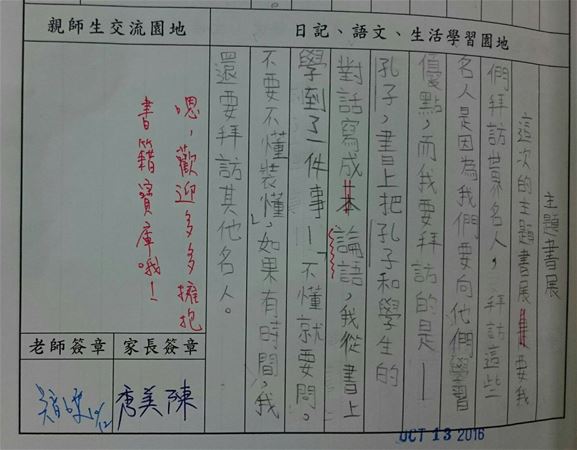 日記、語文、生活學習園地
主題書展
這次的主題書展要我
們拜訪某名人，拜訪這些
名人是因為我們要向他們學習
優點，而我要拜訪的是—
孔子，書上把孔子和學生的
對話寫成本論語，我從書上
學到了一件事—「不懂就要問。
不要不懂裝懂」，如果有時間，我
還要拜訪其他名人。
親師生交流園地
嗯，歡迎多多擁抱
書籍寶庫哦！
家長簽章
秀美陳
老師簽章
10/12
OCT 13 2016